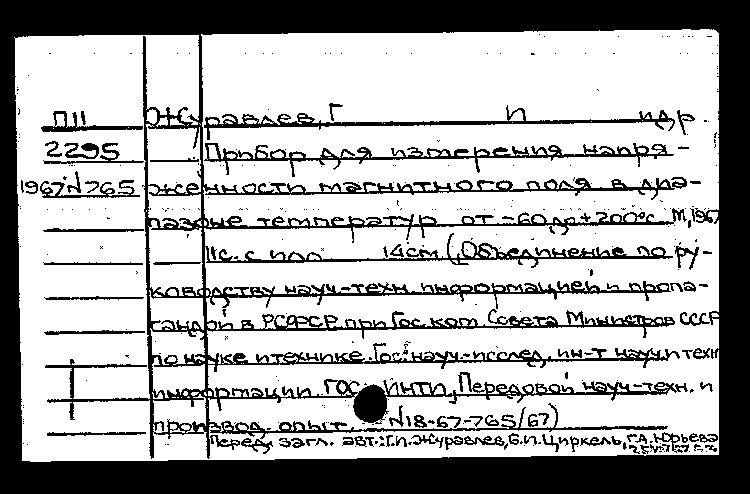 П11 Журавлев, Г П и др.
2295 Прибор для измерения напря-
1967№765 женности магнитного поля в диа-
пазоне температур от -60 до +200°с М, 1967
11с. с илл 14см (Объединение по ру-
ководству науч-техн. информацией и пропа-
гандой в РСФСР при Гос. ком. Совета Министров СССР
по науке и технике. Гос. науч.-исслед. ин-т науч. и техн
информации. ГОС ИНТИ, Передовой науч-техн. и
производ. опыт. №18-67-765/67)
Перед. загл. авт.: Г.П. Журавлев, Б.И. Циркель, Г.А. Юрьева